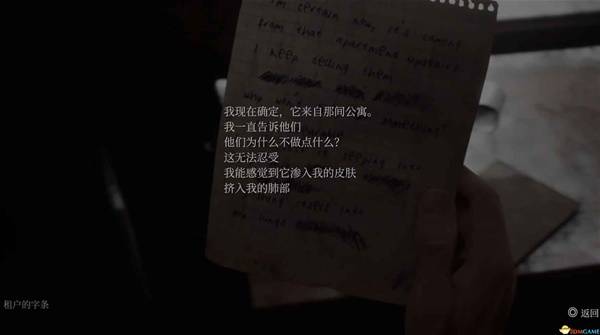 I'm certain now, it's coming
from that apartment upstairs.
I keep telling them
我现在确定，它来自那间公寓。
我一直告诉他们
他们为什么不做点什么？
这无法忍受
我能感觉到它渗入我的皮肤
挤入我的肺部
my lungs
租户的字条
返回
TOMGAME